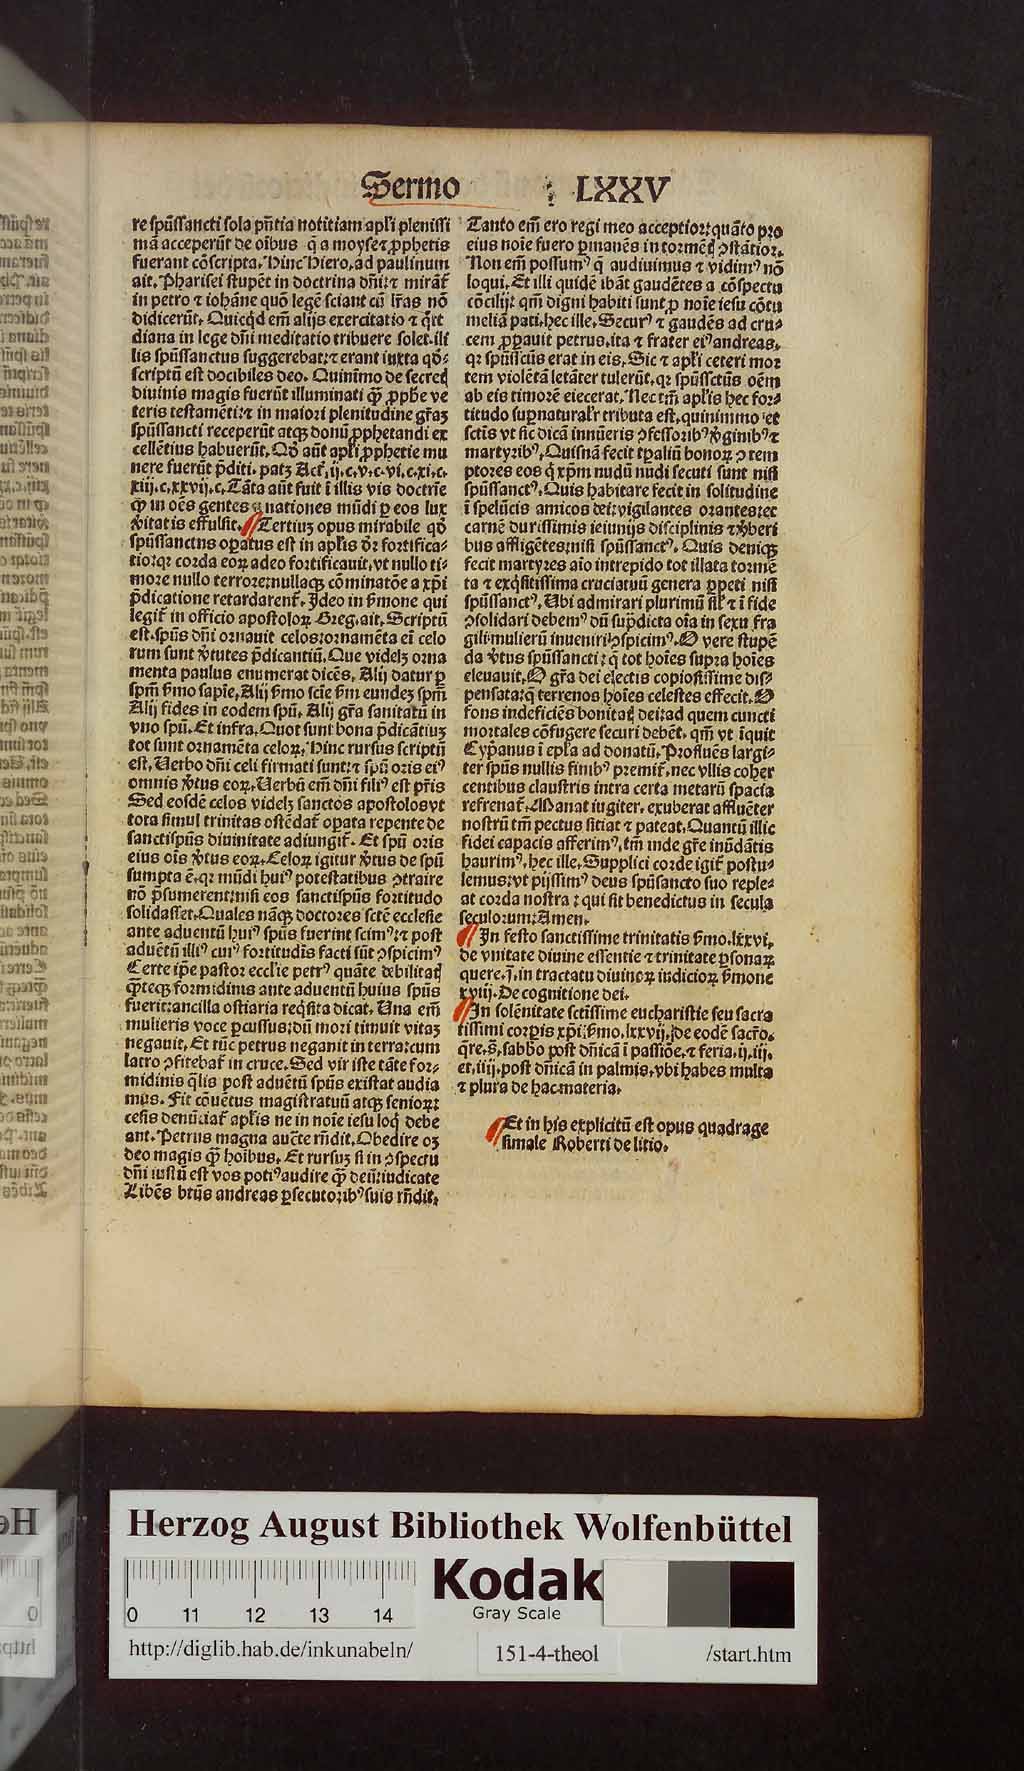 Sermo LXXV
re spūssancti sola pn̄tia notitiam apl̄i plenissi
mā acceperūt de oībus q̄ a moyse ⁊ ꝓphetis
fuerant cōscripta. Hinc Hiero. ad paulinum
ait. Pharisei stupēt in doctrina dn̄i: ⁊ mirāt̄
in petro ⁊ iohāne quō legē sciant cū lr̄as nō
didicerūt. Quicq̇d em̄ alijs exercitatio ⁊ q̊tt
diana in lege dn̄i meditatio tribuere solet. ill̄
lis spūssanctus suggerebat: ⁊ erant iuxta qd̄
scriptū est docibiles deo. Quinīmo de secreꝭ
diuinis magis fuerūt illuminati qꝫ̄ ꝓphe ve
teris testamēti: ⁊ in maiori plenitudine gr̄aꝫ
spūssancti receperūt atqꝫ donū ꝓphetandi ex
cellētius habuerūt. Qd̓ aūt apl̄i ꝓphetie mu
nere fuerūt p̄diti. patꝫ Act̄. ij. c. v. c. vi. c. xi. c.
xiij. c. xxvij. c. Tāta aūt fuit ī illis vis doctrīe
qꝫ̄ in oēs gentes ⁊ nationes mūdi ꝑ eos lux
v̓itatis effulsit. Tertiuꝫ opus mirabile qd̓
spūssanctus oꝑatus est in apl̄is dr̄ fortifica⸗
tio: qꝛ corda eoꝝ adeo fortificauit, vt nullo ti⸗
more nullo terrore: nullaqꝫ cōminatōe a xp̄i
p̄dicatione retardarent̄. Ideo in s̓mone qui
legit̄ in officio apostoloꝝ Greg. ait. Scriptū
est. spūs dn̄i ornauit celos: ornamēta em̄ celo
rum sunt v̓tutes p̄dicantiū. Que videlꝫ orna
menta paulus enumerat dicēs. Alij datur ꝑ
spm̄ s̓mo sapīe, Alij s̓mo scīe s̓m eundeꝫ spm̄
Alij fides in eodem spū. Alij gr̄a sanitatū in
vno spū. Et infra. Quot sunt bona p̄dicātiuꝫ
tot sunt ornamēta celoꝝ. Hinc rursus scriptū
est. Uerbo dn̄i celi firmati sunt: ⁊ spū oris eiꝰ
omnis v̓tus eoꝝ. Uerbū em̄ dn̄i filiꝰ est pr̄is
Sed eosdē celos videlꝫ sanctos apostolos vt
tota simul trinitas ostēdat̄ oꝑata repente de
sanctispūs diuinitate adiungit̄. Et spū oris
eius oīs v̓tus eoꝝ. Celoꝝ igitur v̓tus de spū
sumpta ē. qꝛ mūdi huiꝰ potestatibus ꝯtraire
nō p̄sumerent: nisi eos sanctispūs fortitudo
solidasset. Quales nāqꝫ doctores sctē ecclesie
ante aduentū huiꝰ spūs fuerint scimꝰ: ⁊ post
aduētū illiꝰ cuiꝰ fortitudīs facti sūt ꝯspicimꝰ
Certe ip̄e pastor eccl̄ie petrꝰ quāte debilitaꝭ
qꝫ̄teqꝫ formidinis ante aduentū huius spūs
fuerit: ancilla ostiaria req̇sita dicat. Una em̄
mulieris voce ꝑcussus: dū mori timuit vitaꝫ
negauit. Et tūc petrus negauit in terra: cum
latro ꝯfitebat̄ in cruce. Sed vir iste tāte for⸗
midinis q̄lis post aduētū spūs existat audia
mus. Fit cōuētus magistratuū atqꝫ senioꝝ:
cesis denūciat̄ apl̄is ne in noīe iesu loq̇ debe
ant. Petrus magna aucte rn̄dit. Obedire oꝫ
deo magis qꝫ̄ hoībus. Et rursuꝫ si in ꝯspectu
dn̄i iustū est vos potiꝰ audire qꝫ̄ deū: iudicate
Libēs bt̄ūs andreas ꝑsecutoribꝰ suis rn̄dit.
Tanto em̄ ero regi meo acceptior: quāto pro
eius noīe fuero ꝑmanēs in tormēꝭ ꝯstātior.
Non em̄ possumꝰ q̄ audiuimus ⁊ vidimꝰ nō
loqui. Et illi quidē ibāt gaudētes a cōspectu
cōcilij: qm̄ digni habiti sunt ꝓ noīe iesu cōtu
meliā pati. hec ille. Securꝰ ⁊ gaudēs ad cru⸗
cem ꝓꝑauit petrus. ita ⁊ frater eiꝰ andreas.
qꝛ spūsscūs erat in eis. Sic ⁊ apl̄i ceteri mor
tem violētā letāter tulerūt. qꝛ spūssctūs oēm
ab eis timorē eiecerat. Nec tm̄ apl̄is hec for⸗
titudo suꝑnaturalr̄ tributa est. quinimmo et
sctīs vt sic dicā innūeris ꝯfessoribꝰ v̓ginibꝰ ⁊
martyribꝰ. Quisnā fecit tꝑaliū bonoꝝ ꝯtem
ptores eos q̇ xp̄m nudū nudi secuti sunt nisi
spūssanctꝰ. Quis habitare fecit in solitudine
ī spelūcis amicos dei: vigilantes orantes: et
carnē durissimis ieiunijs disciplinis ⁊ v̓beri
bus affligētes: nisi spūssanctꝰ. Quis deniqꝫ
fecit martyres aīo intrepido tot illata tormē
ta ⁊ exq̇sitissima cruciatuū genera ꝑpeti nisi
spūssanctꝰ. Ubi admirari plurimū sil̄ ⁊ ī fide
ꝯsolidari debemꝰ dū sup̄dicta oīa in sexu fra
gili mulierū inueniri ꝯspicimꝰ. O vere stupē
da v̓tus spūssancti: q̄ tot hoīes supra hoīes
eleuauit. O gr̄a dei electis copiosissime dis⸗
pensata: q̄ terrenos hoīes celestes effecit. O
fons indeficiēs bonitaꝭ dei: ad quem cuncti
mortales cōfugere securi debēt. qm̄ vt īquit
Cyp̄anus ī epl̄a ad donatū. Profluēs largi⸗
ter spūs nullis finibꝰ premit̄. nec vllis coher
centibus claustris intra certa metarū spacia
refrenat̄. Manat iugiter. exuberat affluēter
nostrū tm̄ pectus sitiat ⁊ pateat. Quantū illic
fidei capacis afferimꝰ. tm̄ inde gr̄e inūdātis
haurimꝰ. hec ille. Supplici corde igit̄ postu⸗
lemus: vt pijssimꝰ deus spūsancto suo reple⸗
at corda nostra: qui sit benedictus in secula
seculorum: Amen.
In festo sanctissime trinitatis s̓mo. lxxvi.
de vnitate diuine essentie ⁊ trinitate ꝑsonaꝝ
quere. j̄. in tractatu diuinoꝝ iudicioꝝ s̓mone
xviij. De cognitione dei.
In solēnitate sctissime eucharistie seu sacra
tissimi corꝑis xp̄i: s̓mo. lxxvij. de eodē sacro.
q̄re. s̄. sabbo post dn̄icā ī passiōe. ⁊ feria. ij. iij.
et. iiij. post dn̄icā in palmis. vbi habes multa
⁊ plura de hac materia.
Et in his explicitū est opus quadrage
simale Roberti de litio.
Herzog August Bibliothek Wolfenbüttel
0 11 12 13 14
Kodak
Gray Scale
http://diglib.hab.de/inkunabeln/ 151-4-theol /start.htm